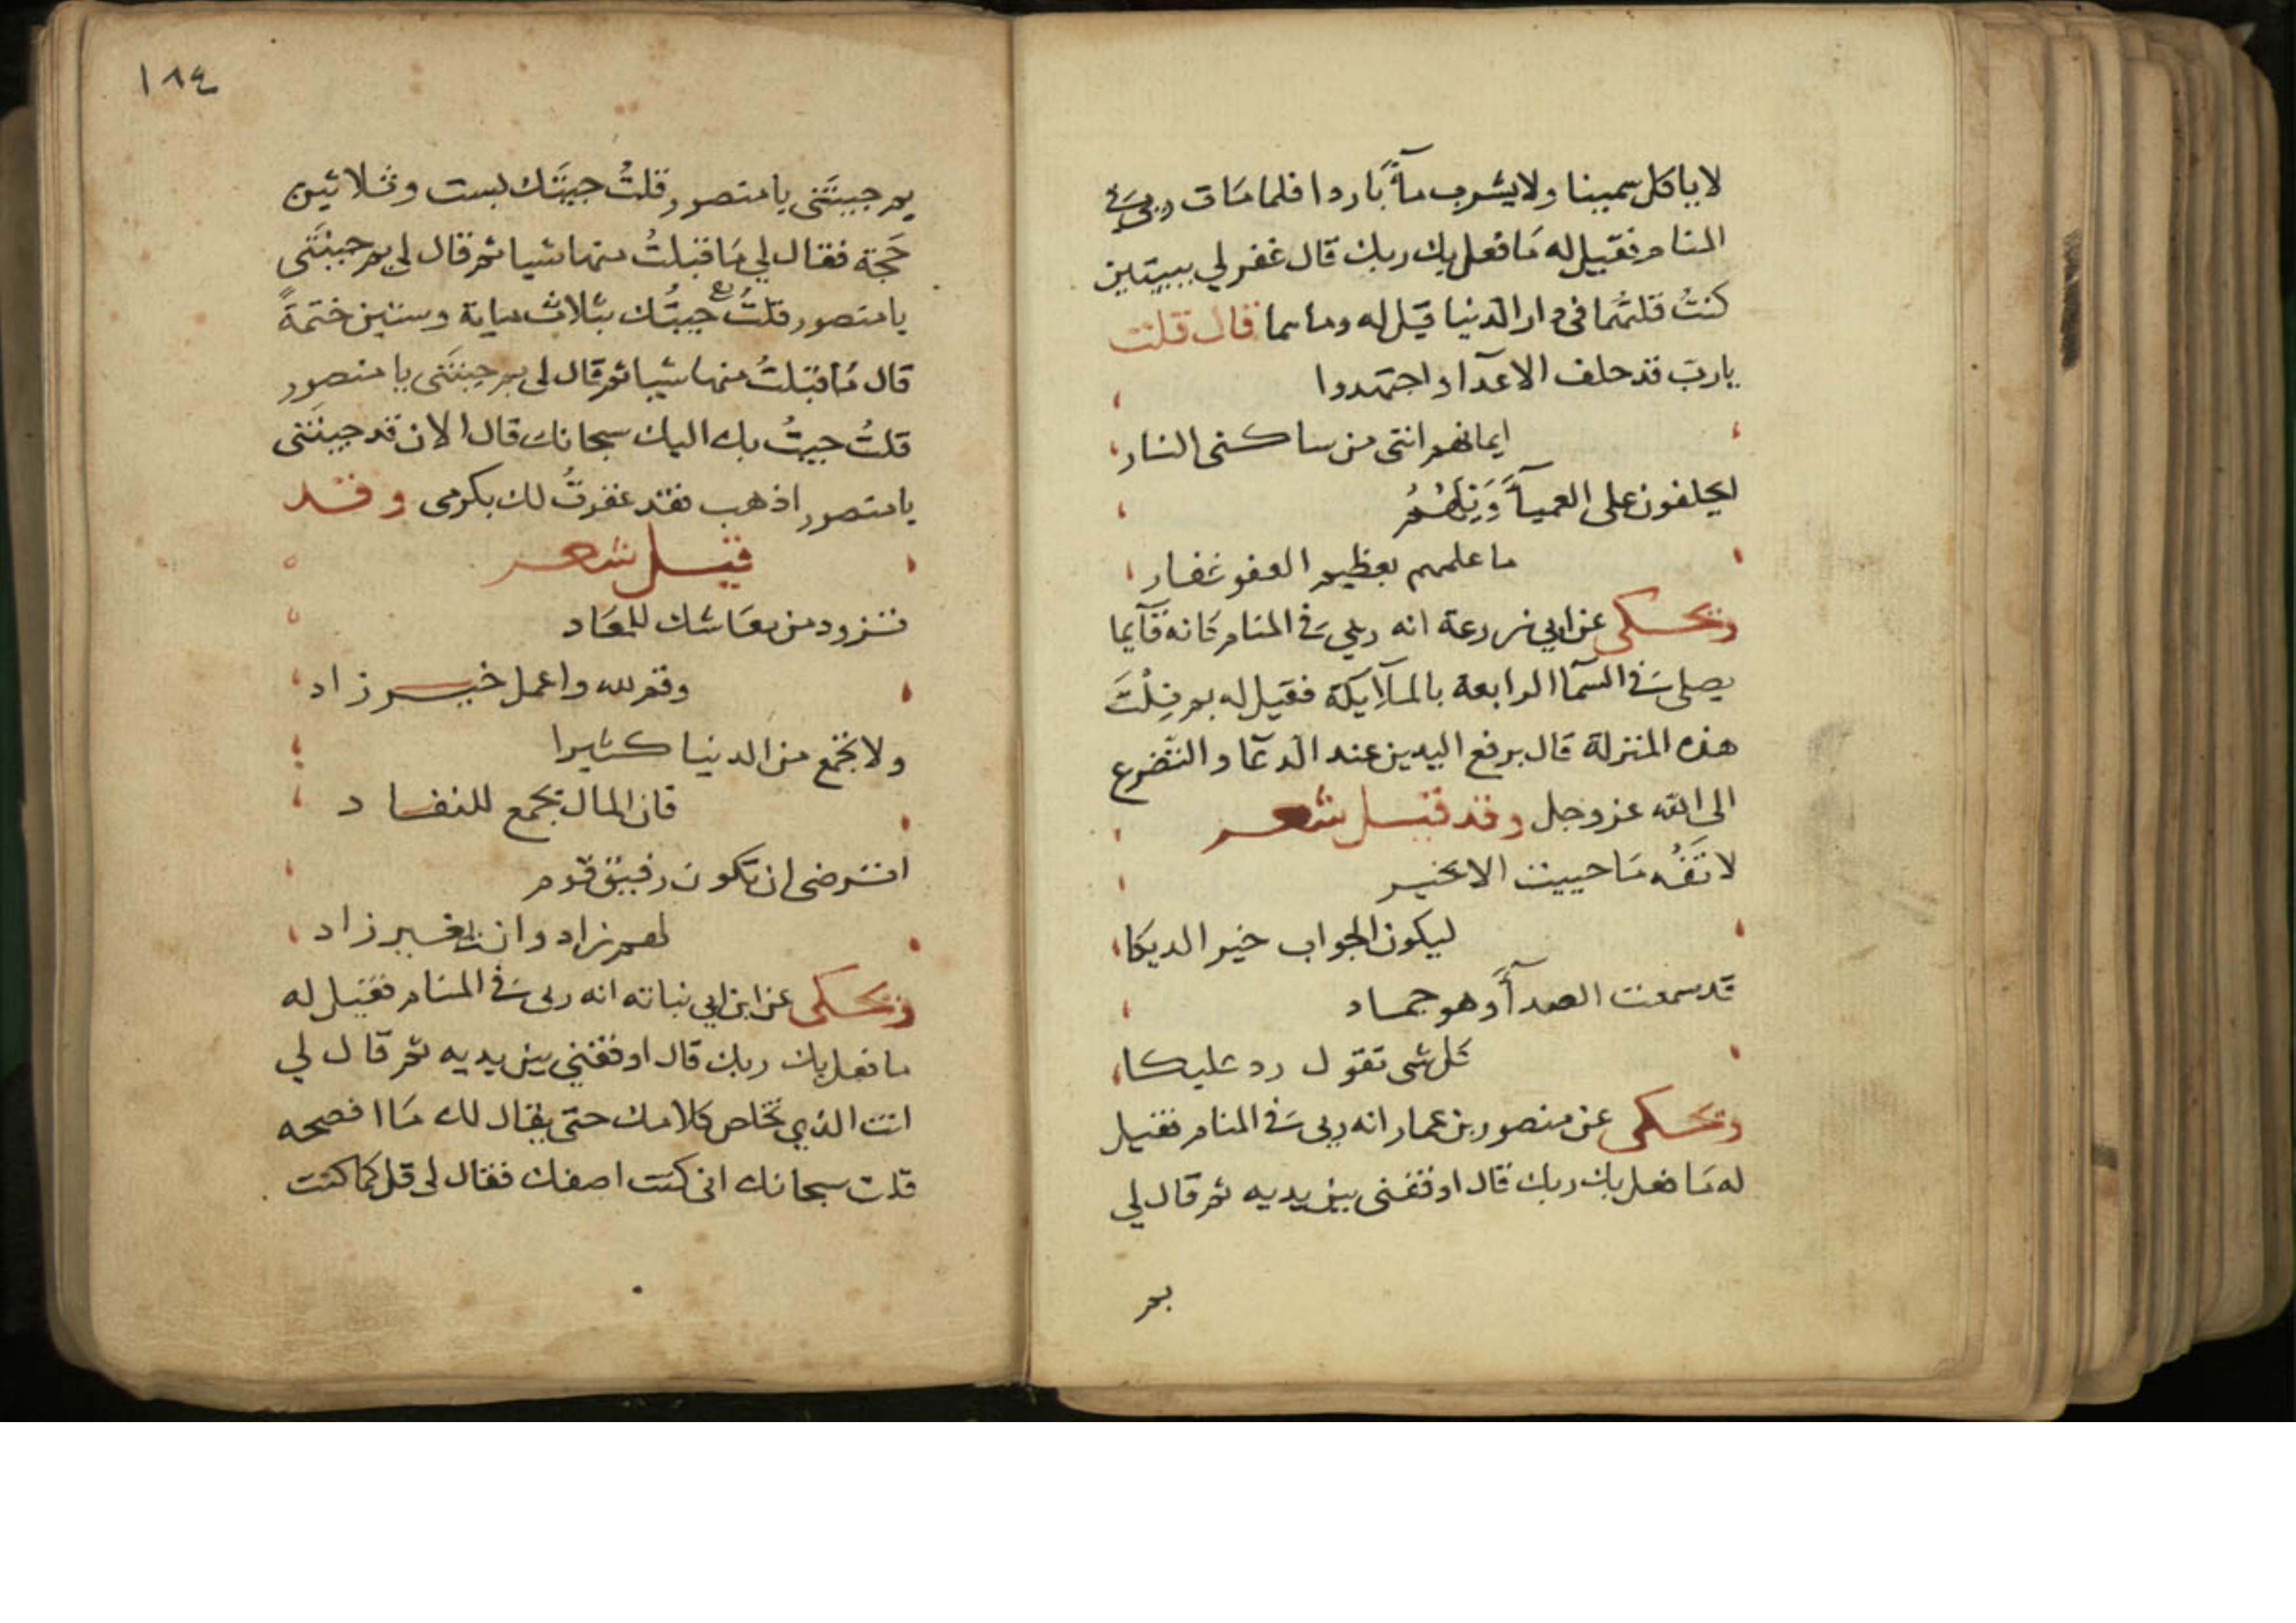 لا ياكل سمينا ولا يشرب مآءً باردا فلما مات ريى فى
المنام فقيل له ما فعل بك ربك قال غفر لي ببيتين
كنتُ قلتُهما فى دار الدنيا قيل له وما هما قال قلت
يا ربّ قد حلف الاعدآ واجتهدوا
ايمانهم انني من ساكنى النار
ايحلفون على العميآءَ وَيْلهُمُ
ما علمهم بعظيم العفو غفار
ويحكى عن ابي زرعة انه ريي فى المنام كانه قآيما
يصلى فى السمآ الرابعة بالملآيكة فقيل له بم نِلْتَ
هذه المنزلة قال برفع اليدين عند الدعا والتضرع
الى الله عز وجل وقد قيل شعر
لا تَفُه ما حييت الا بخير
ليكون الجواب خير الديكا
قد سمعت الصدآءَ وهو جماد
كل شى تقول رد عليكا
ويحكى عن منصور بن عمار انه ريى فى المنام فقيل
له ما فعل بك ربك قال اوقفنى بين يديه ثم قال لي
بم
١٨٤
بم جيتَنى يا منصور قلتُ جيتَك بست وثلاثين
حَجّة فقال لي ما قبلتُ منها شيا ثم قال لي بم جيتَنى
يا منصور قلتُ جيتُك بثلاث ماية وستين ختمةً
قال ما قبلتُ منها شيا ثم قال لى بم جيتَنى يا منصور
قلتُ جيتُ بك اليك سبحانك قال الان قد جيتَنى
يا منصور اذهب فقد غفرتُ لك بكرمى وقد
قيل شعر
تزود من معاشك للمعاد
وقم لله واعمل خير زاد
ولا تجمع من الدنيا كثيرا
فان المال يجمع للنفاد
اترضى ان تكون رفيق قوم
لهم زاد وانت بغير زاد
ويحكى عن ابن ابي نباته انه ريى فى المنام فقيل له
ما فعل بك ربك قال اوقفني بين يديه ثم قال لي
انت الذي تخلص كلامك حتى يقال لك ما افصحه
قلت سبحانك انى كنت اصفك فقال لى قل كما كنت